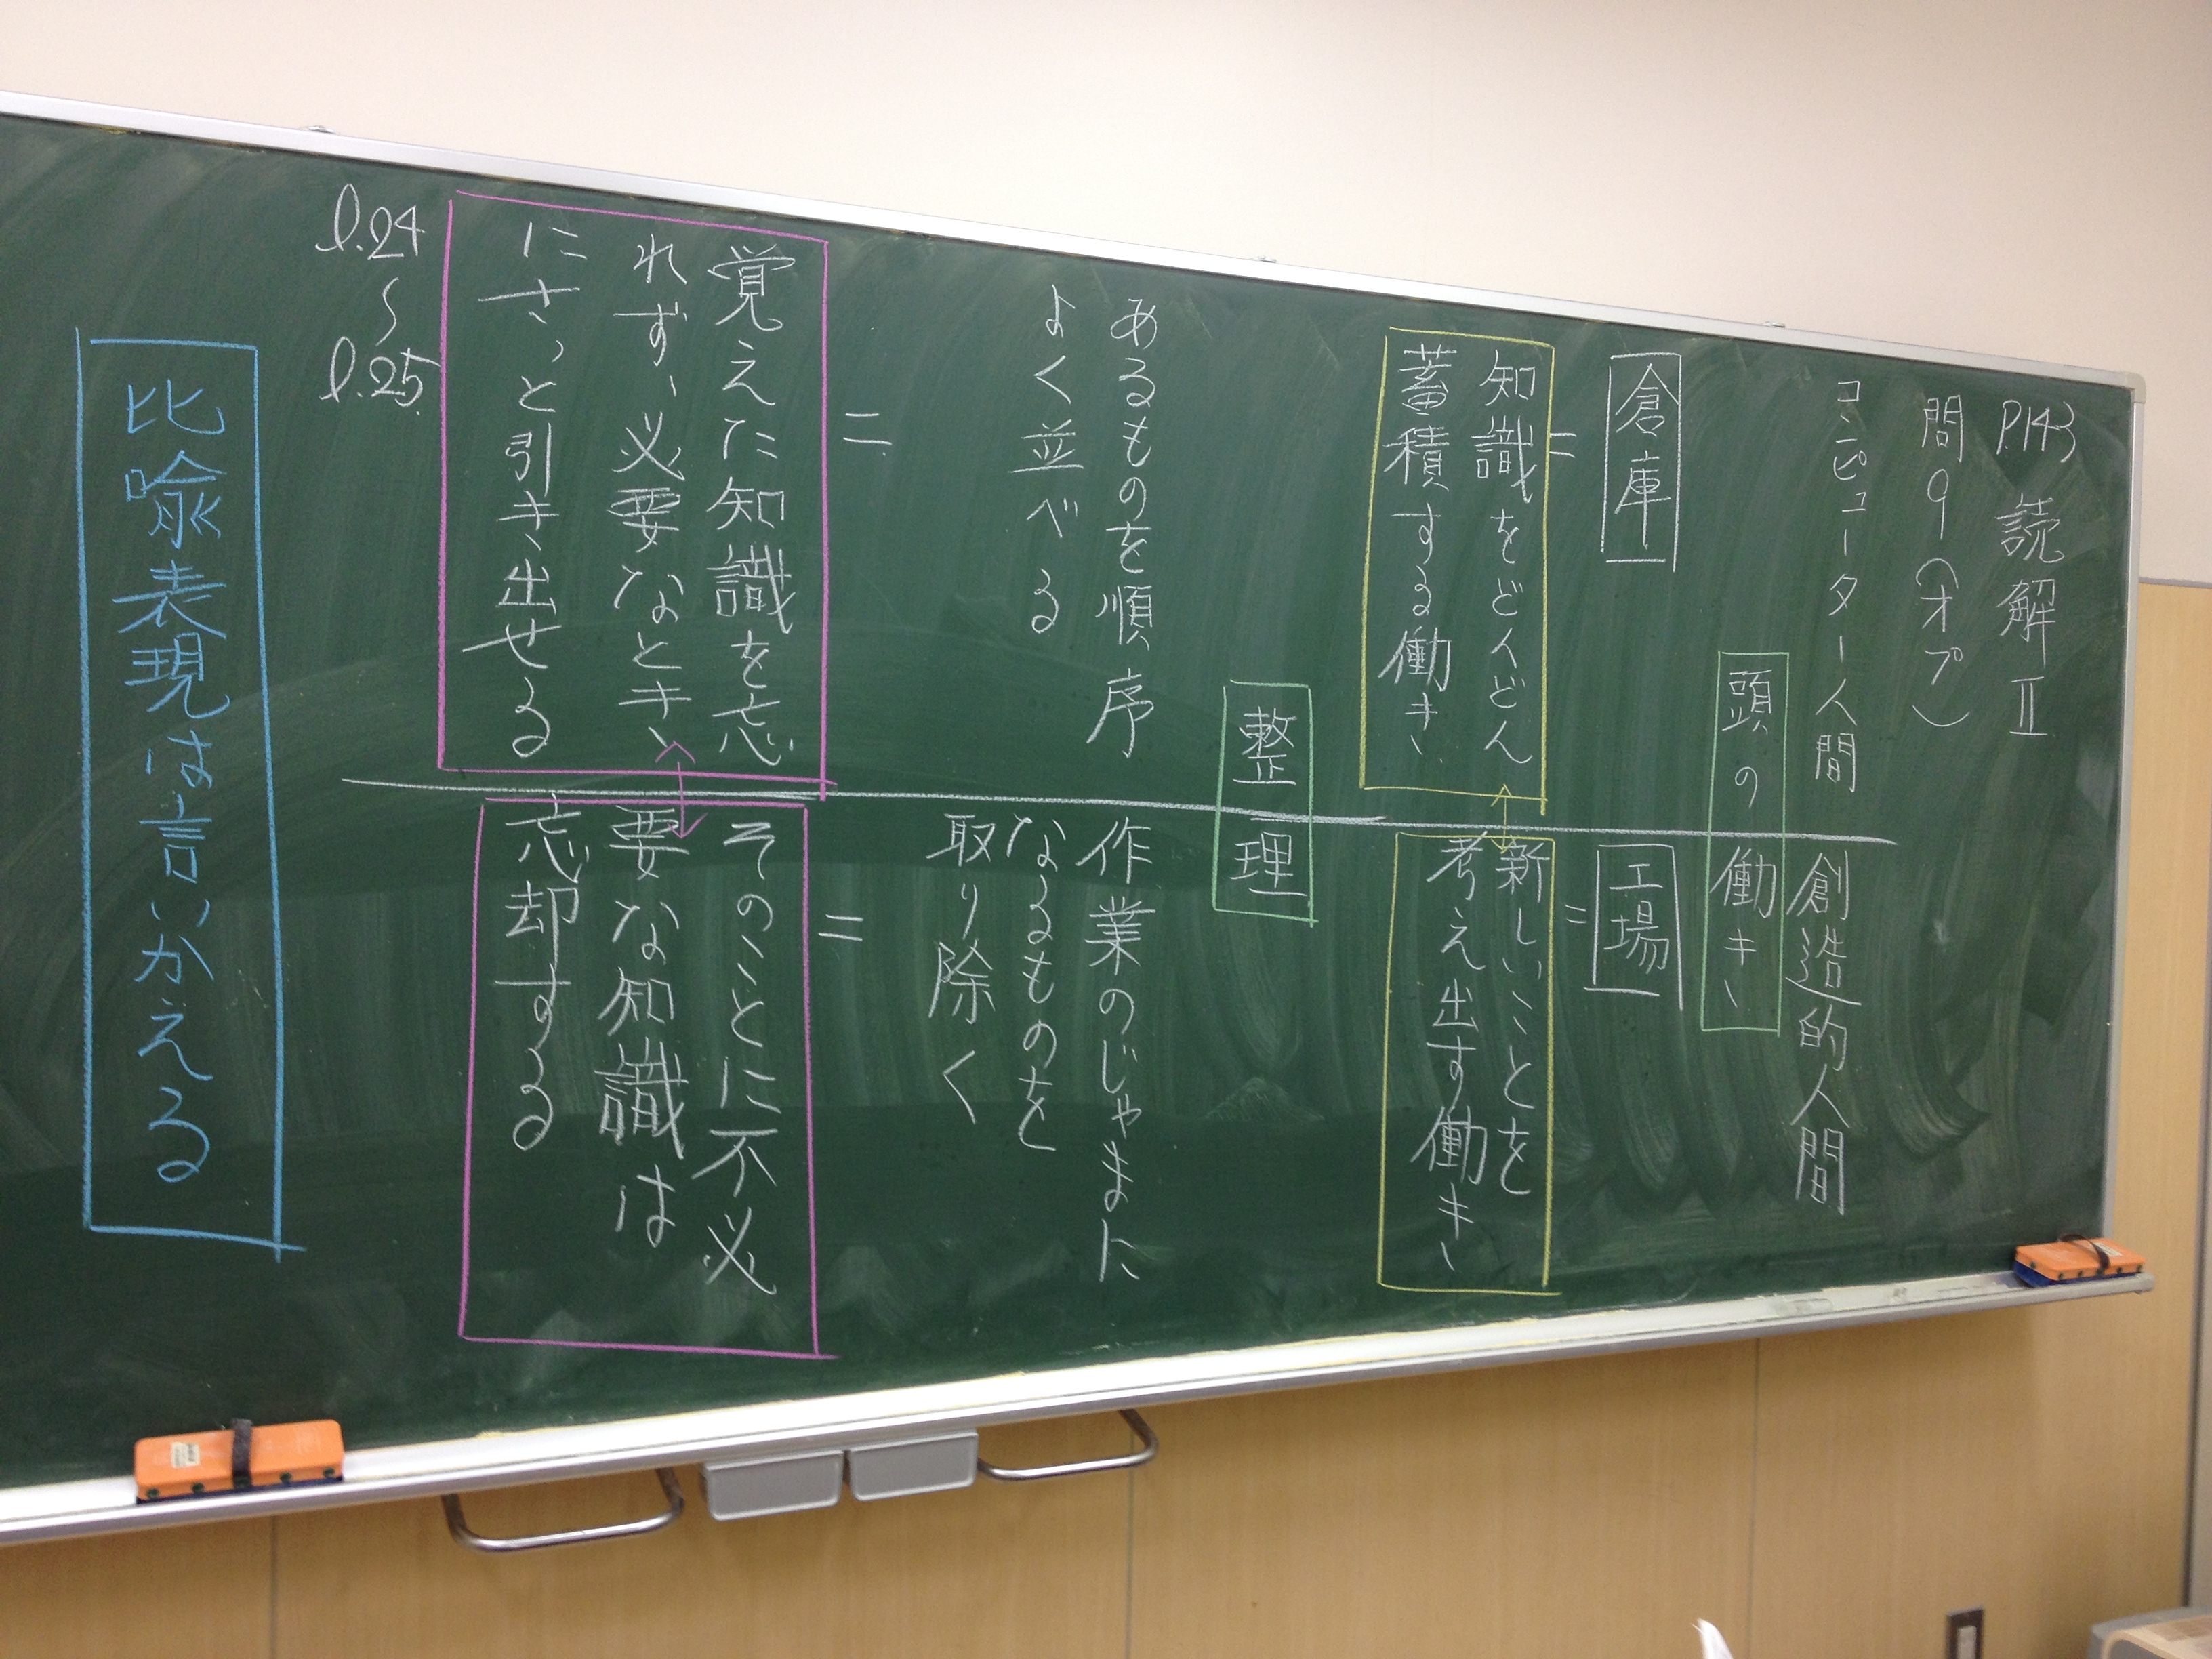 P.143 読解Ⅱ
問9(オプ)
コンピューター人間
創造的人間
頭の働き
倉庫
=
知識をどんどん
蓄積する働き
工場
=
新しいことを
考え出す働き
整理
あるものを順序
よく並べる
=
覚えた知識を忘
れず、必要なとき
にさっと引き出せる
l.24〜l.25
作業のじゃまに
なるものを
取り除く
=
そのことに不必
要な知識は
忘却する
比喩表現は言いかえる